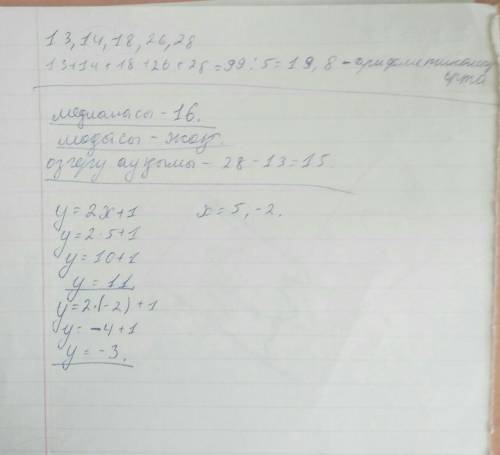 13, 14, 18, 26, 28
13+14+18+26+28=99:5=19,8-арифметикалық
орта
медианасы - 16.
модасы - жоқ.
өзгеру ауқымы - 28-13=15.
y=2x+1 x=5,-2.
y=2·5+1
y=10+1
y=11.
y=2·(-2)+1
y=-4+1
y=-3.